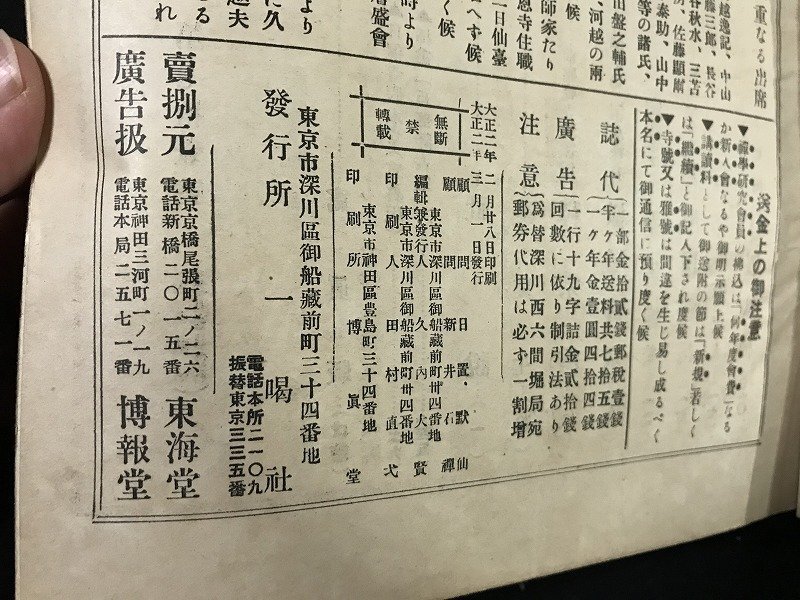 重なる出席
送金上の御注意
▼禪學研究會員の拂込は「何年度會費」なる
か新入會なるや御明示願上候
▼講讀料として御送附の節は「新規」若しく
は「繼續」と御記入下され度候
▼寺號又は雅號は間違を生じ易し成るべく
本名にて御通信に預り度く候
誌代
一部金拾貳錢郵稅壹錢
半ヶ年送料共七拾五錢
一ヶ年金壹圓四拾四錢
廣告
一行十九字詰金貳拾錢
回數に依り割引法あり
注意
爲替深川西六間堀局宛
郵券代用は必ず一割增
大正二年二月廿八日印刷
大正二年三月一日發行
無斷
禁
轉載
顧問 日置默仙
顧問 新井石禪
東京市深川區御船藏前町卅四番地
編輯兼發行人 久內大賢
東京市深川區御船藏前町卅四番地
印刷人 田村直弌
東京市神田區豊島町三十四番地
印刷所 博眞堂
東京市深川區御船藏前町三十四番地
發行所 一喝社
電話本所二一〇九
振替東京三三五番
賣捌元
東京京橋尾張町二ノ二六
電話新橋二〇一五番
東海堂
廣告扱
東京神田三河町一ノ一九
電話本局二五七一番
博報堂